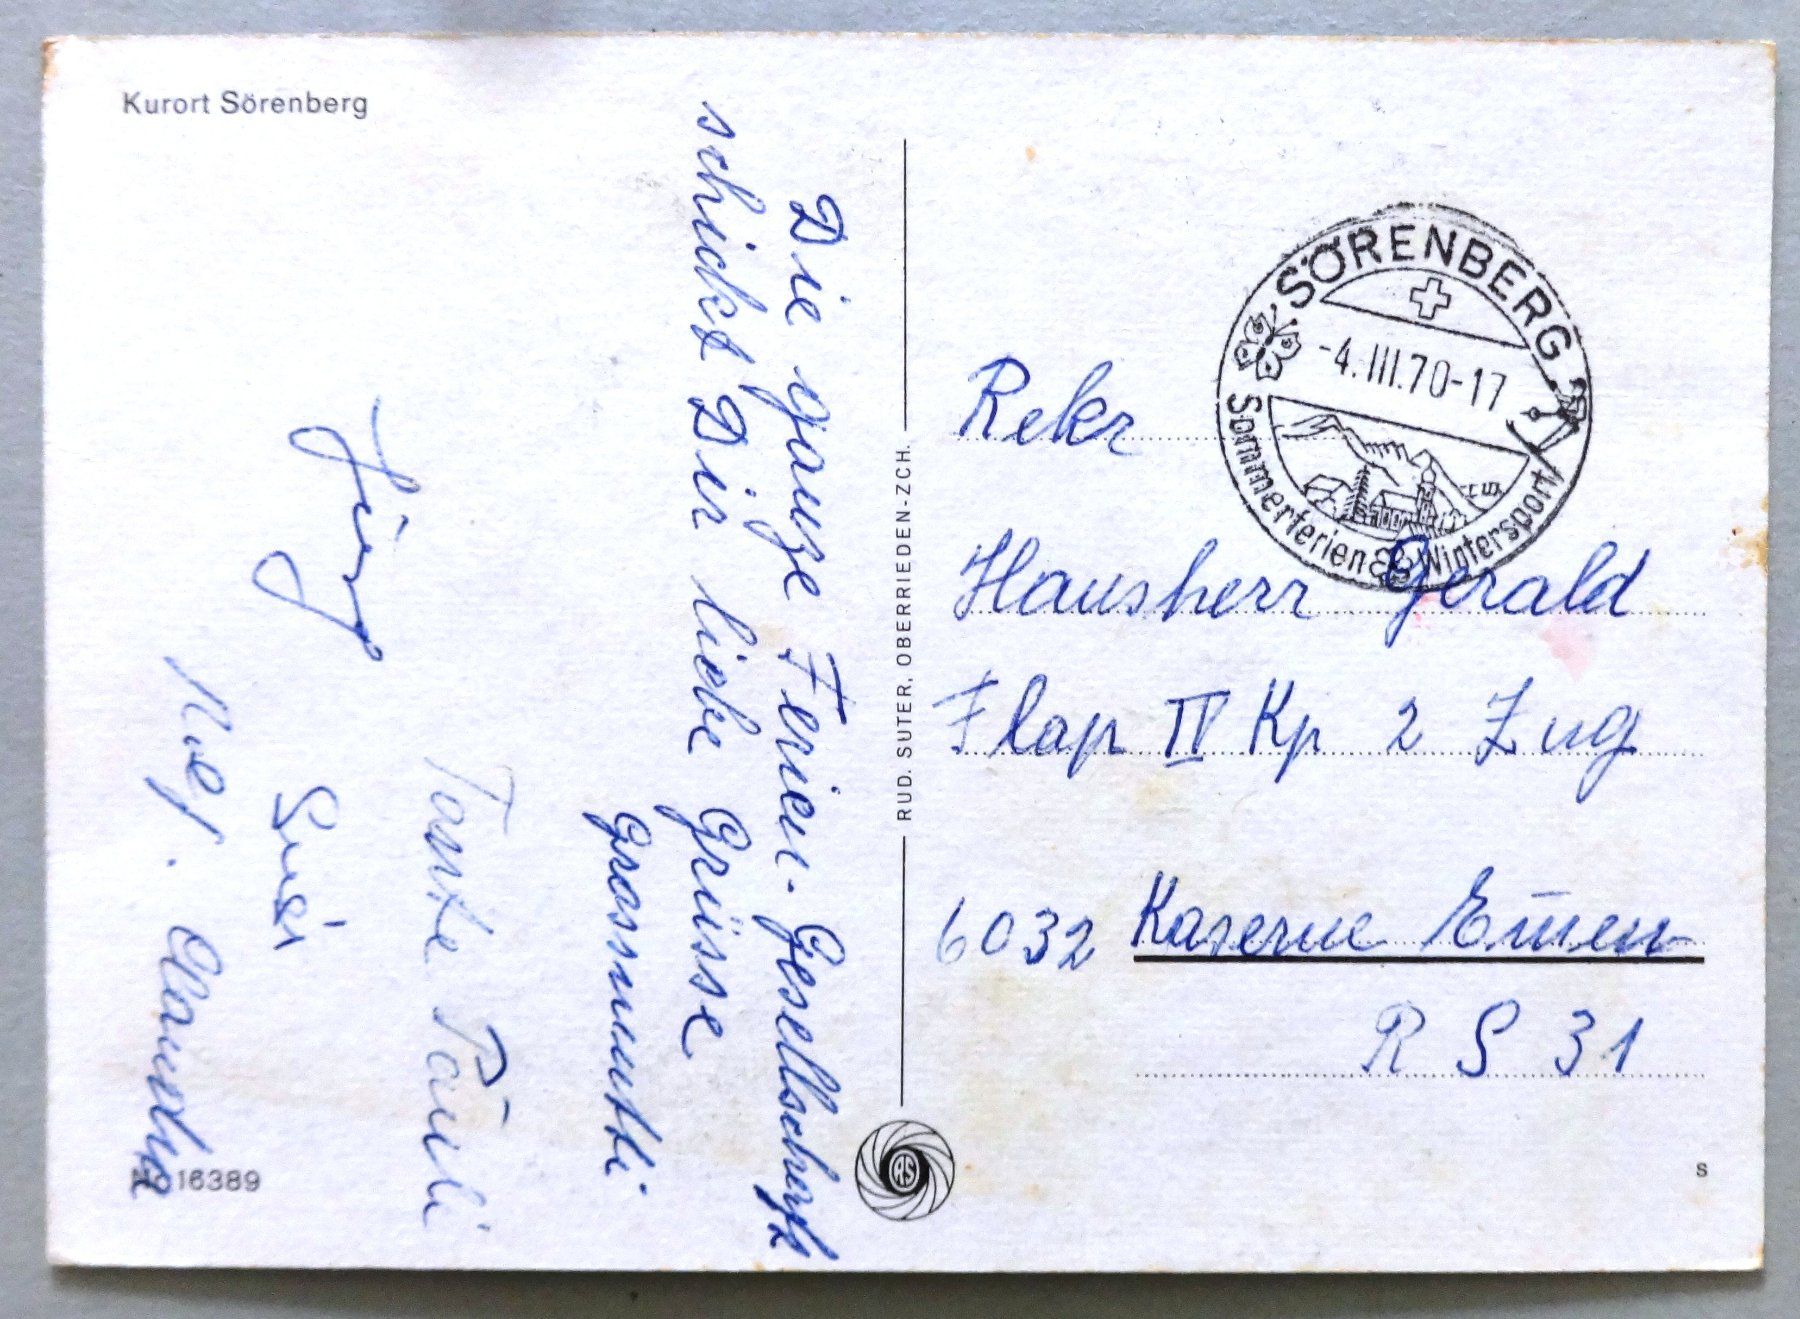 Kurort Sörenberg
Die ganze Ferien-Gesellschaft
schickt Dir liebe Grüsse
Grossmutti
Tante Päuli
Jürg
Susi
Claudia
No 16389
RUD. SUTER, OBERRIEDEN-ZCH.
RS
SÖRENBERG
-4.III.70-17
Sommerferien & Wintersport
Rekr
Hausherr Gerald
Flap IV Kp 2 Zug
6032 Kaserne Em̅en
R S 31
S